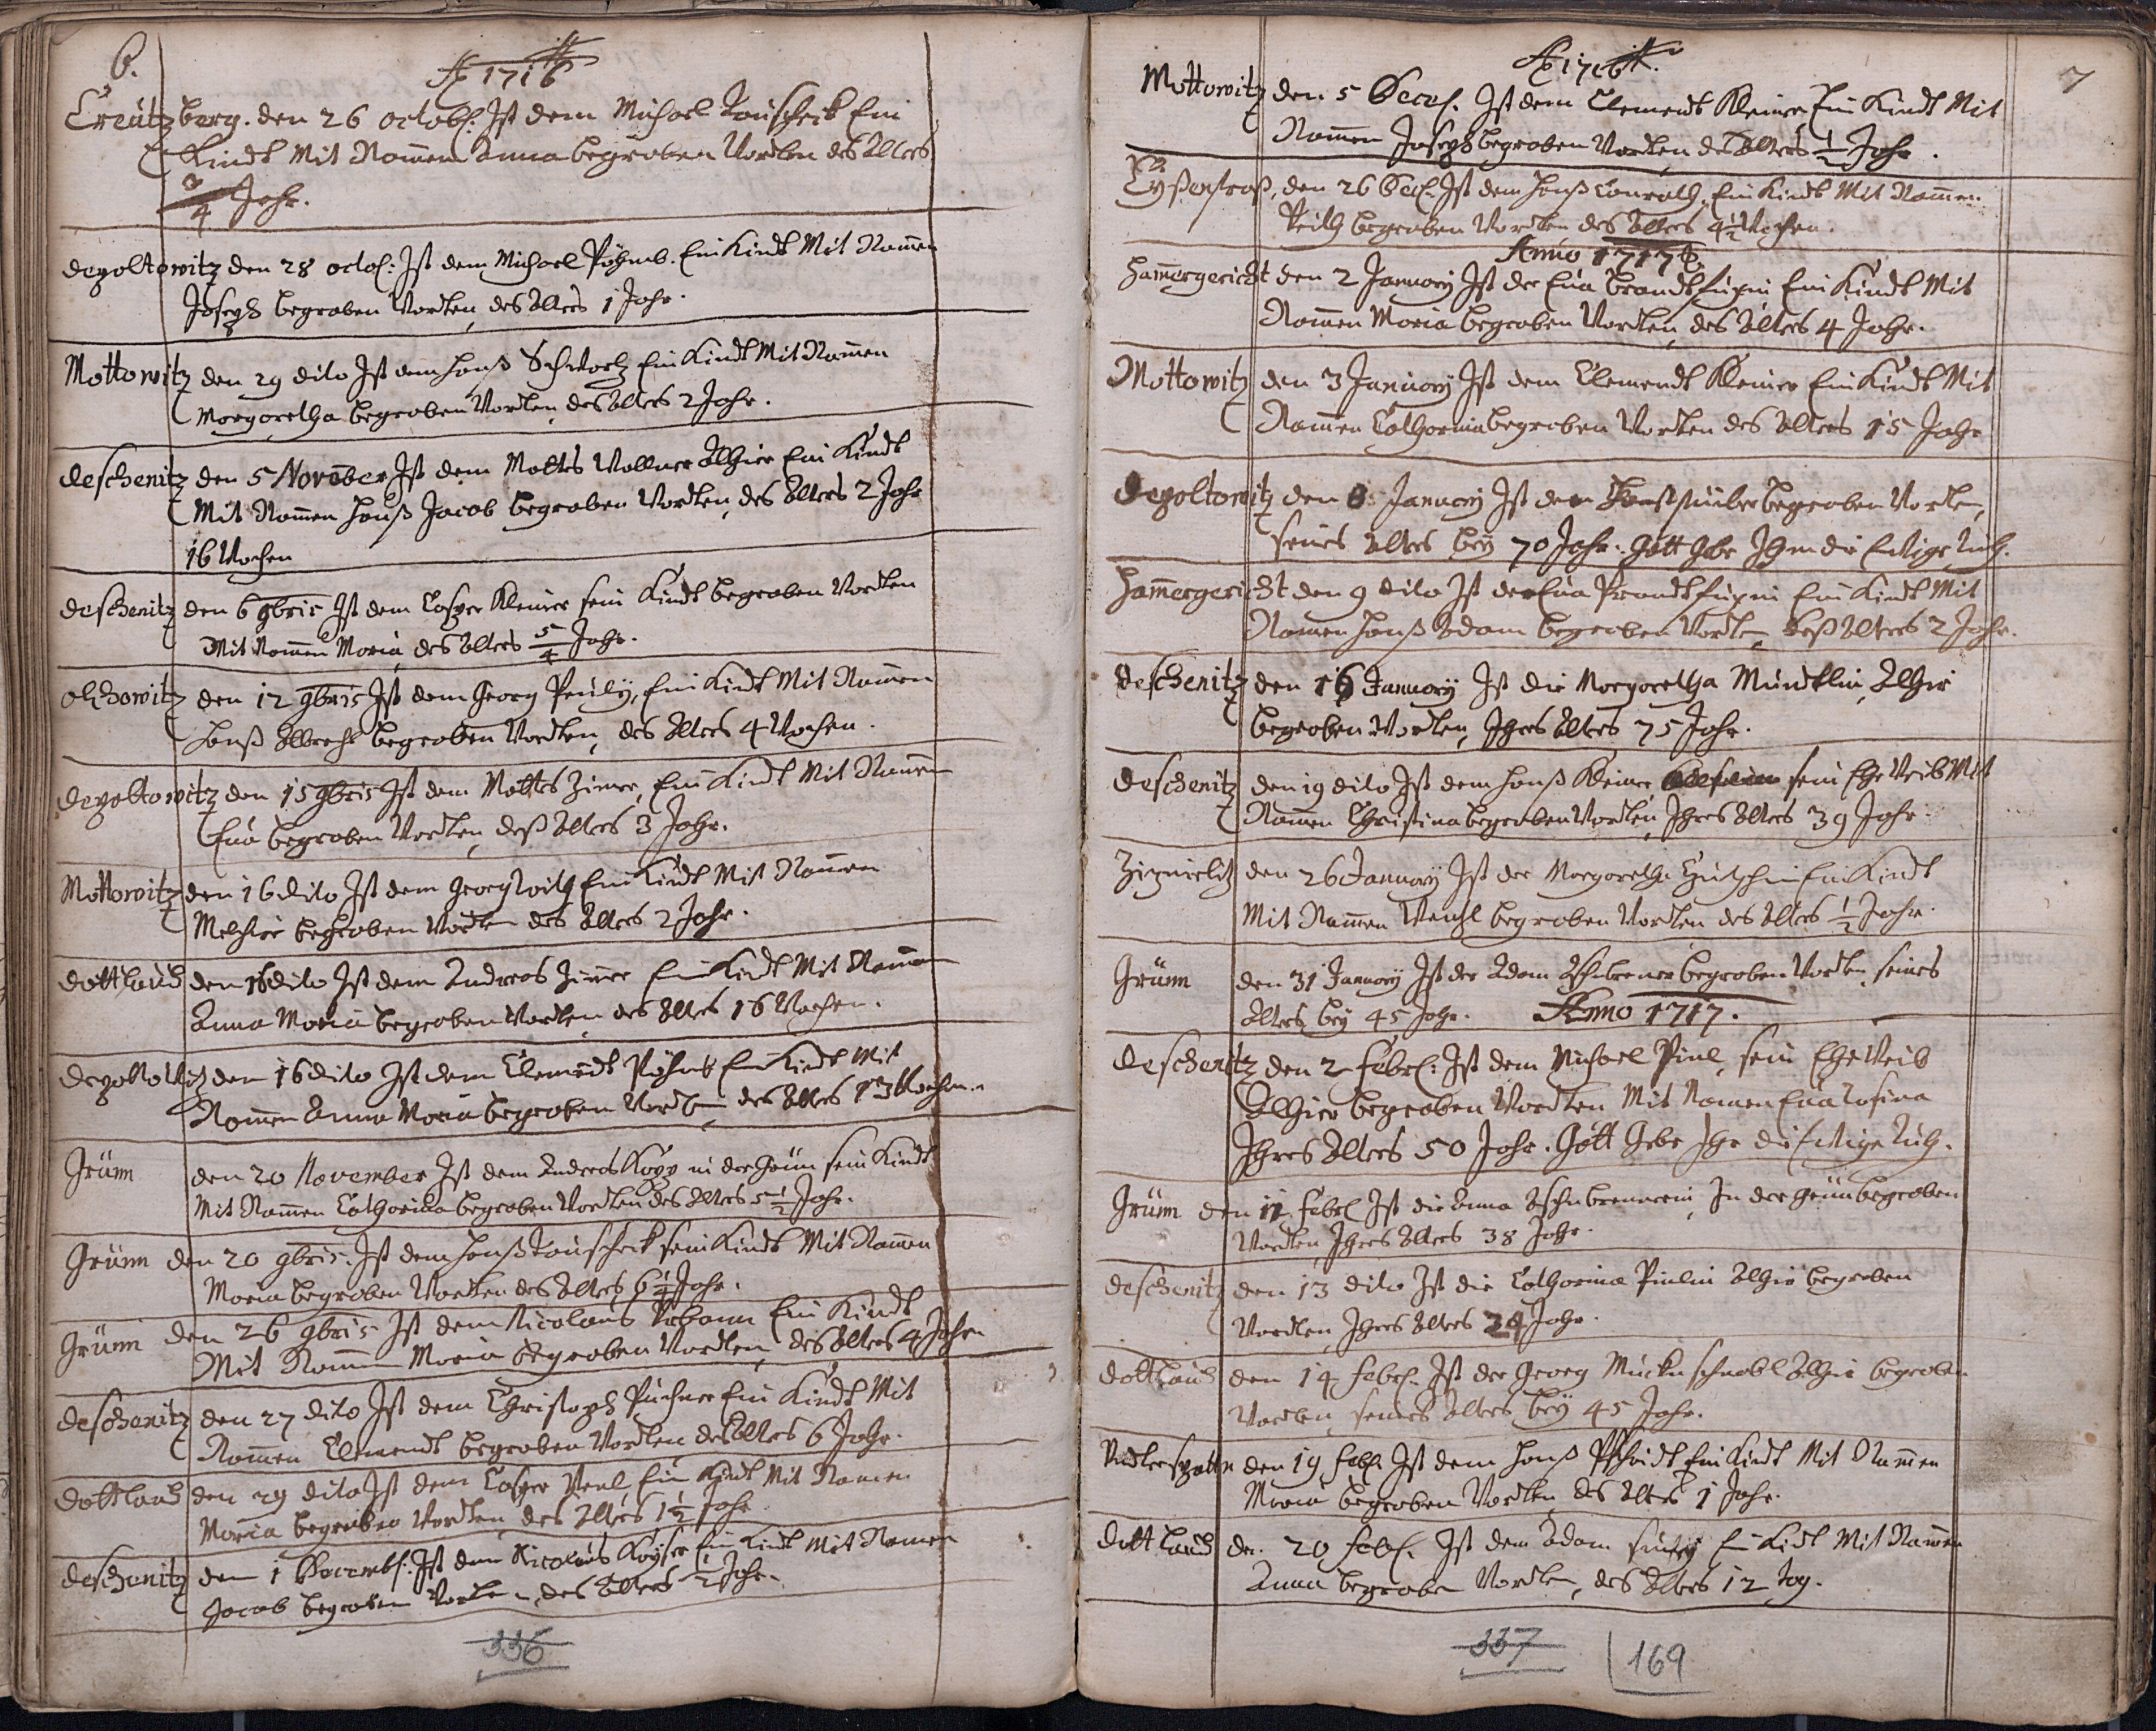 6.
Ao 1716
Creütz berg. den 26 octobr: Ist dem Michael Rauscheck Ein
Kindt Mit Nammen Anna begraben Worden des Alters
3/4 Jahr.
depoltowitz den 28 octob: Ist dem Michael Pöhmb. Ein Kindt Mit Nammen
Joseph begraben Worden, des Alters 1 Jahr.
Mottowitz den 29 dito Ist dem Hanß Schwartz Ein Kindt Mit Nammen
Margaretha begraben Worden, des Alters 2 Jahr.
deschenitz den 5 November Ist dem Mattes Wollner Alhier Ein Kindt
Mit Nammen Hanß Jacob begraben Worden, des Alters 2 Jahr
16 Wochen
deschenitz den 6 9bris Ist dem Casper Kleiner sein Kindt begraben Worden
Mit Nammen Maria des Alters 5/4 Jahr.
olchowitz den 12 9bris Ist dem Georg Pauly, Ein Kindt Mit Nammen
Hanß Albrecht begraben Worden, des Alters 4 Wochen.
depoltowitz den 15 9bris Ist dem Mattes Zimer, Ein Kindt Mit Nammen
Eua begraben Worden, deß Alters 3 Jahr.
Mottowitz den 16 dito Ist dem Georg Voith Ein Kindt Mit Nammen
Melchior begraben Worden des Alters 2 Jahr.
dottlaub den 16 dito Ist dem Andreas Zimer Ein Kindt Mit Nammen
Anna Maria begraben Worden, des Alters 16 Wochen.
depoltowitz den 16 dito Ist dem Clemendt Pöhmb Ein Kindt Mit
Nammen Anna Maria begraben Worden des Alters 13 Wochen.
Grünn den 20 November Ist dem Andreas Kopp in der Grün sein Kindt
Mit Nammen Catharina begraben Worden des Alters 5 1/2 Jahr.
Grünn den 20 9bris. Ist dem Hanß Rauscheck sein Kindt Mit Nammen
Maria begraben Worden des Alters 6 1/2 Jahr.
Grünn den 26 9bris Ist dem Nicolaus Urbann Ein Kindt
Mit Nammen Maria begraben Worden, des Alters 4 Jahr
deschenitz den 27 dito Ist dem Christoph Puchner Ein Kindt Mit
Nammen Clemendt begraben Worden des Alters 6 Jahr.
dottlaub den 29 dito Ist dem Casper Ein Kindt Mit Namen
Maria begraben Worden, des Alters 1 1/2 Jahr
deschenitz den 1 Decembr: Ist dem Nicolaus Kayser Ein Kindt Mit Namen
Jacob begraben Worden, des Alters 1/2 Jahr.
336
7
Ao 1716.
Mottowitz den 5 Decebr. Ist dem Clemendt Kleiner Ein Kindt Mit
Nammen Joseph begraben Worden, des Alters 1/2 Jahr.
Eyßenstraß, den 26 Decbr. Ist dem Hanß Conrath, Ein Kindt Mit Nammen
Veith begraben Worden des Alters 4 1/2 Wochen.
Anno 1717
Hammergericht den 2 January Ist der Eua Ein Kindt Mit
Nammen Maria begraben Worden, des Alters 4 Jahr.
Mottowitz den 3 January Ist dem Clemendt Kleiner Ein Kindt Mit
Nammen Catharina begraben Worden des Alters 15 Jahr
depoltowitz den 8 January Ist der begraben Worden,
seines Alters bey 70 Jahr. Gott Gebe Ihm die Ewige Ruh.
Hammergericht den 9 dito Ist der Eua Ein Kindt Mit
Namen Hanß Adam begraben Worden, deß Alters 2 Jahr.
deschenitz den 16 January Ist die Margaretha Alhir
begraben Worden, Ihres Alters 75 Jahr.
deschenitz den 19 dito Ist dem Hanß Kleiner sein Ehe Weib Mit
Nammen Christina begraben Worden Ihres Alters 39 Jahr.
den 26 January Ist der Margaretha Ein Kindt
Mit Nammen Wenzl begraben Worden des Alters 1/2 Jahr.
Grünn den 31 January Ist der Adam begraben Worden, seines
Alters bey 45 Jahr. Anno 1717.
deschenitz den 2 Febr: Ist dem Michael Piel, sein Ehe Weib
Alhier begraben Worden Mit Namen Eua Rosina
Ihres Alters 50 Jahr. Gott Gebe Ihr die Ewige Ruh.
Grünn den 11 Febr. Ist die Anna Aschenbrennerin, In der Grün begraben
Worden, Ihres Alters 38 Jahr.
deschenitz den 13 dito Ist die Catharina Pielin Alhir begraben
Worden, Ihres Alters 24 Jahr.
dottlaub den 14 Febr. Ist der Georg Muckenschnabl Alhir begraben
Worden, seines Alters bey 45 Jahr.
den 19 Febr. Ist dem Hanß Ein Kindt Mit Nammen
Maria begraben Worden, des Alters 1 Jahr.
dottlaub den 20 Febr. Ist dem Adam Ein Kindt Mit Nammen
Anna begraben Worden, des Alters 12 Tag.
337
169